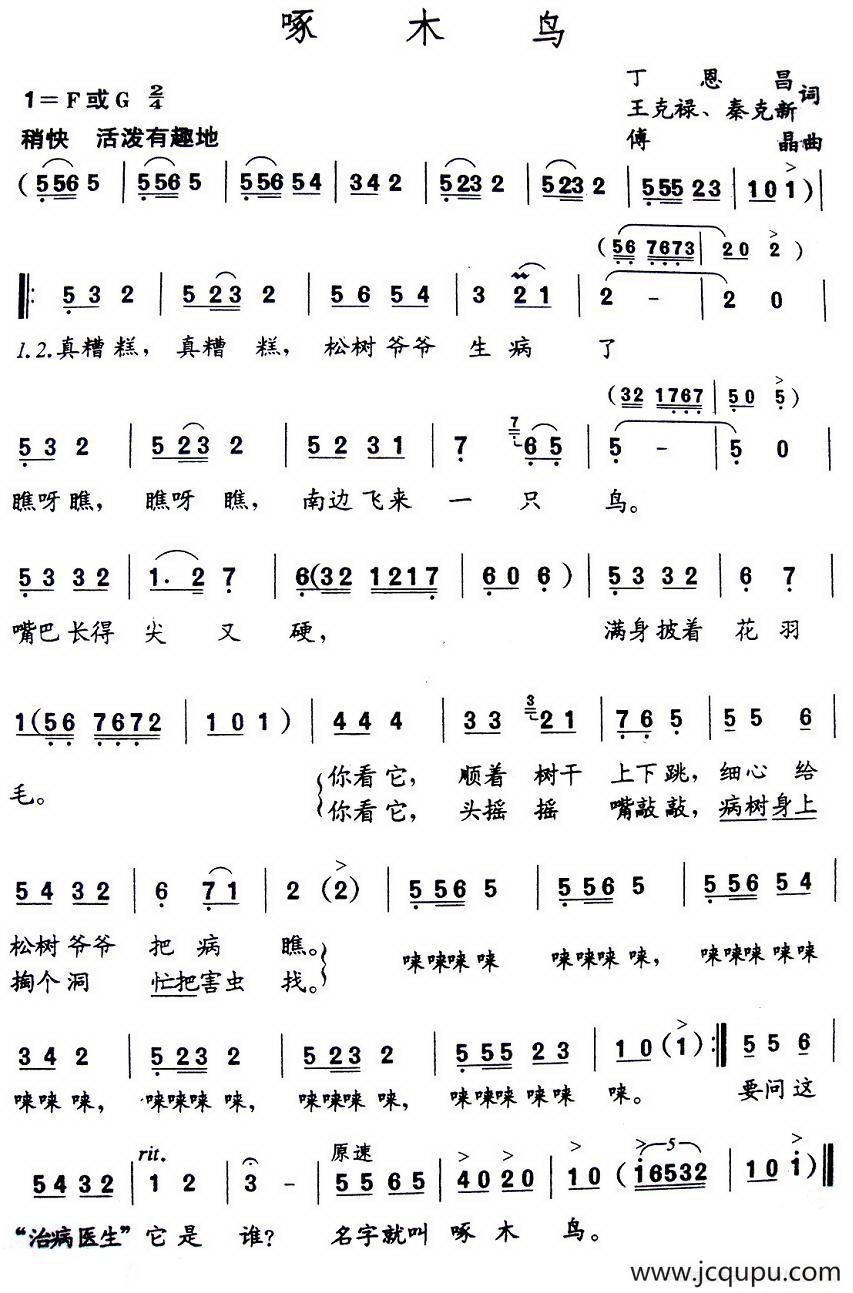 啄木鸟
1=F或G 2/4
丁恩昌
王克禄、秦克新 词
稍快 活泼有趣地
傅晶曲
(5565 | 5565 | 556 54 | 342 | 5232 | 5232 | 555 23 | 101)|
(56 7673 | 20 2)
‖: 532 | 5232 | 56 54 | 3 21 | 2 - | 20 |
1.2.真糟糕，真糟糕，松树爷爷生病了
(32 1767 | 50 5)
532 | 5232 | 52 31 | 7 7 65 | 5 - | 50 |
瞧呀瞧，瞧呀瞧，南边飞来一只鸟。
53 32 | 1. 2 7 | 6(32 1217 | 606) | 53 32 | 6 7 |
嘴巴长得尖又硬，满身披着花羽
1(56 7672 | 101) | 44 4 | 33 3 21 | 76 5 | 55 6 |
毛。
你看它，顺着树干上下跳，细心给
你看它，头摇摇嘴敲敲，病树身上
54 32 | 6 71 | 2 (2) | 5565 | 5565 | 556 54 |
松树爷爷把病瞧。
唻唻唻唻 唻唻唻唻，唻唻唻唻唻
掏个洞 忙把害虫找。
342 | 5232 | 5232 | 555 23 | 10(1) :‖ 55 6 |
唻唻唻，唻唻唻唻，唻唻唻唻，唻唻唻唻唻唻。要问这
rit. 原速
5432 | 1 2 | 3 - | 55 65 | 40 20 | 10 (i6532 | 10 i)‖
5
“治病医生”它是谁？名字就叫啄木鸟。
www.jcqupu.com